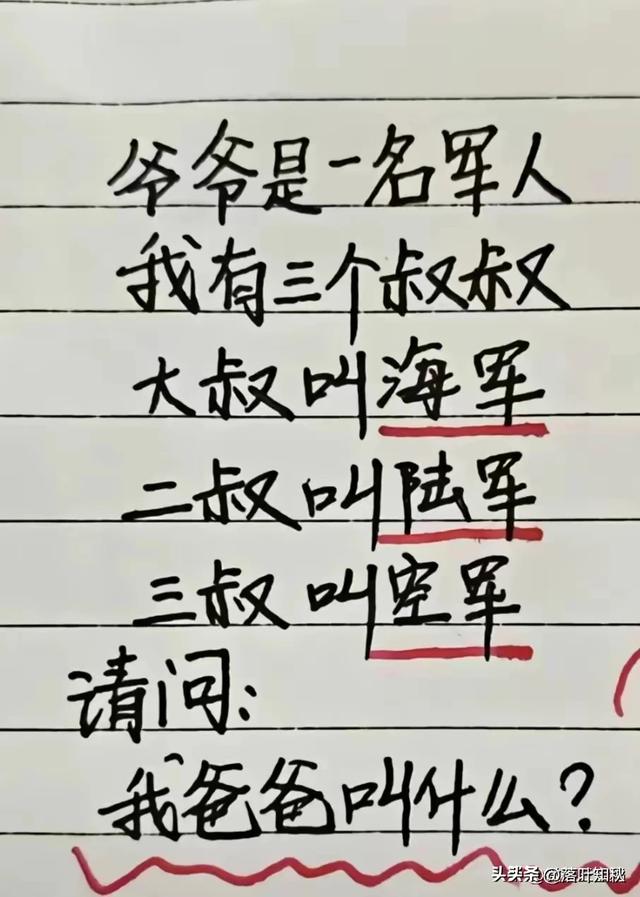 爷爷是一名军人
我有三个叔叔
大叔叫海军
二叔叫陆军
三叔叫空军
请问:
我爸爸叫什么?
头条@落叶知秋